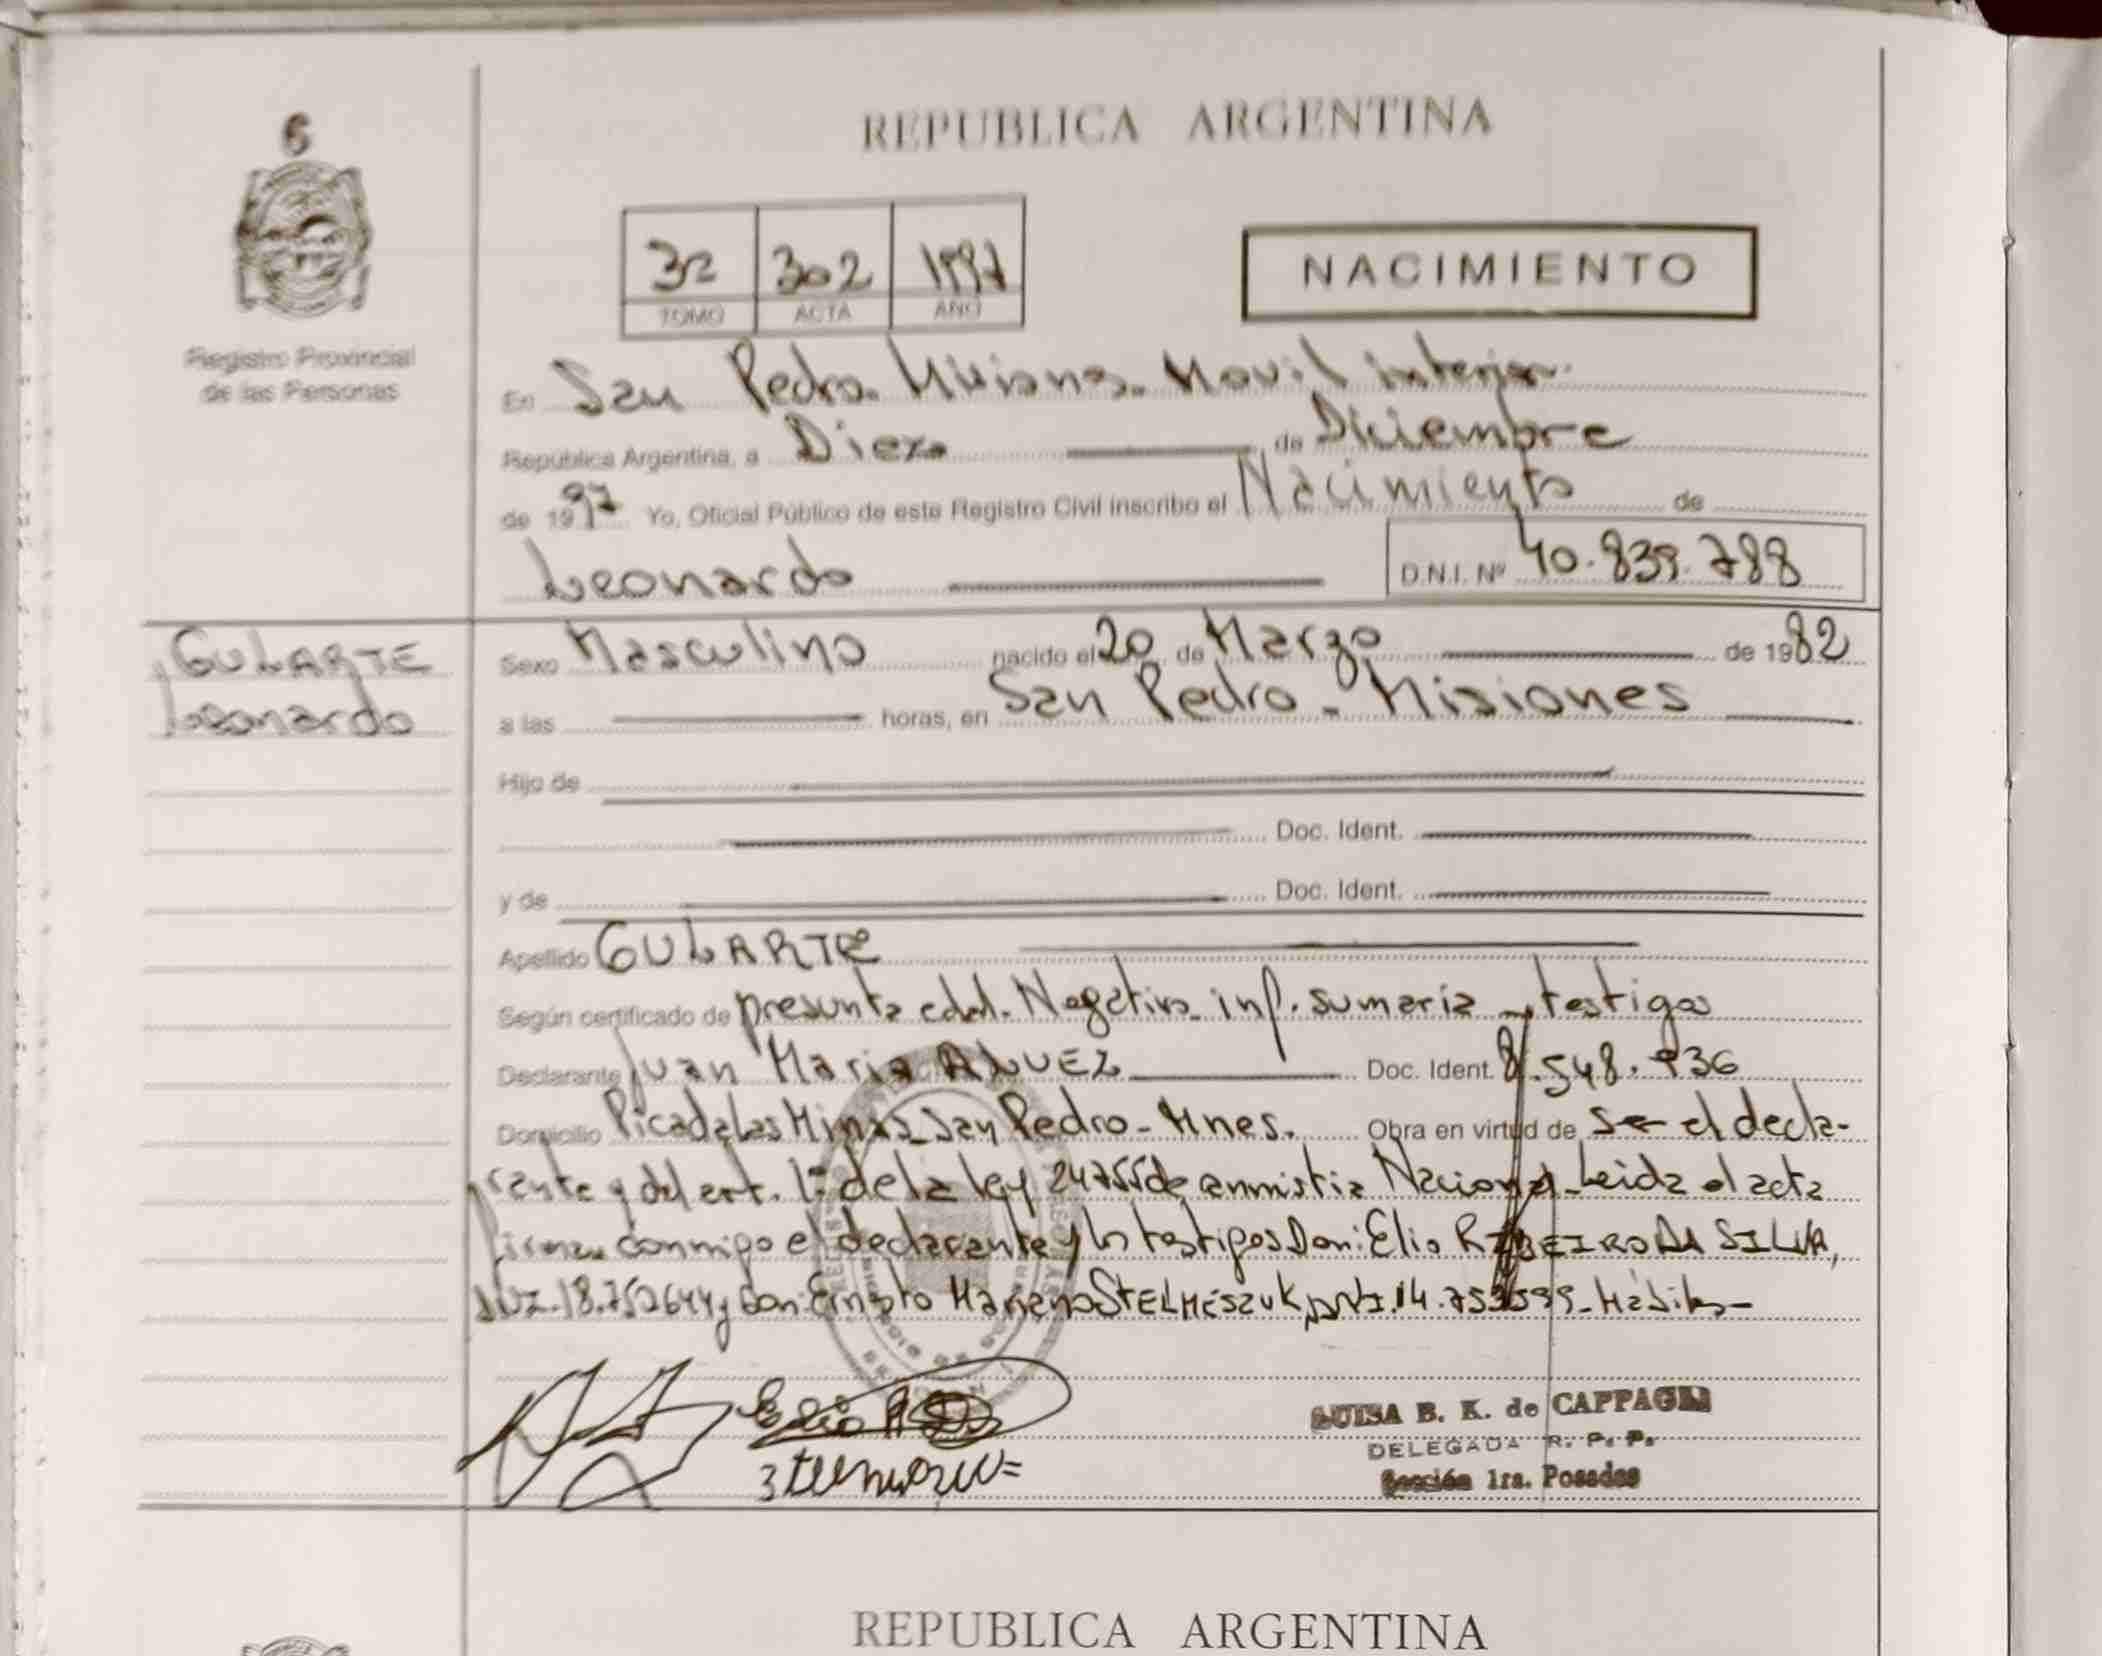 6
REPUBLICA ARGENTINA
302 1997
TOMO ACTA AÑO
NACIMIENTO
Registro Provincial
de las Personas
En San Pedro. Misiones. Movil interior.
República Argentina, a Diez de Diciembre
de 1997 Yo, Oficial Público de este Registro Civil inscribo el Nacimiento de
Leonardo D.N.I. Nº 40.839.788
GULARTE
Leonardo
Sexo Masculino nacido el 20 de Marzo de 1982
a las horas, en San Pedro - Misiones
Hijo de
Doc. Ident.
y de Doc. Ident.
Apellido GULARTE
Según certificado de presunta edad. Negativo inf. sumaria y testigos
Declarante Juan Maria ALVEZ Doc. Ident. 8.548.936
Domicilio Picada Las Minas San Pedro - Mnes. Obra en virtud de Ser el decla-
rante y del art. 1º de la ley 24755 de amnistia Nacional. Leida el acta
firman conmigo el declarante y los testigos Don: Elio RIBEIRO DA SILVA,
DNI. 18.750644 y Don: Ernesto Mariano STELMESZUK, DNI. 14. - Hábiles -
LUISA B. K. de CAPPAGLI
DELEGADA R. P. P.
Sección 1ra. Posadas
REPUBLICA ARGENTINA